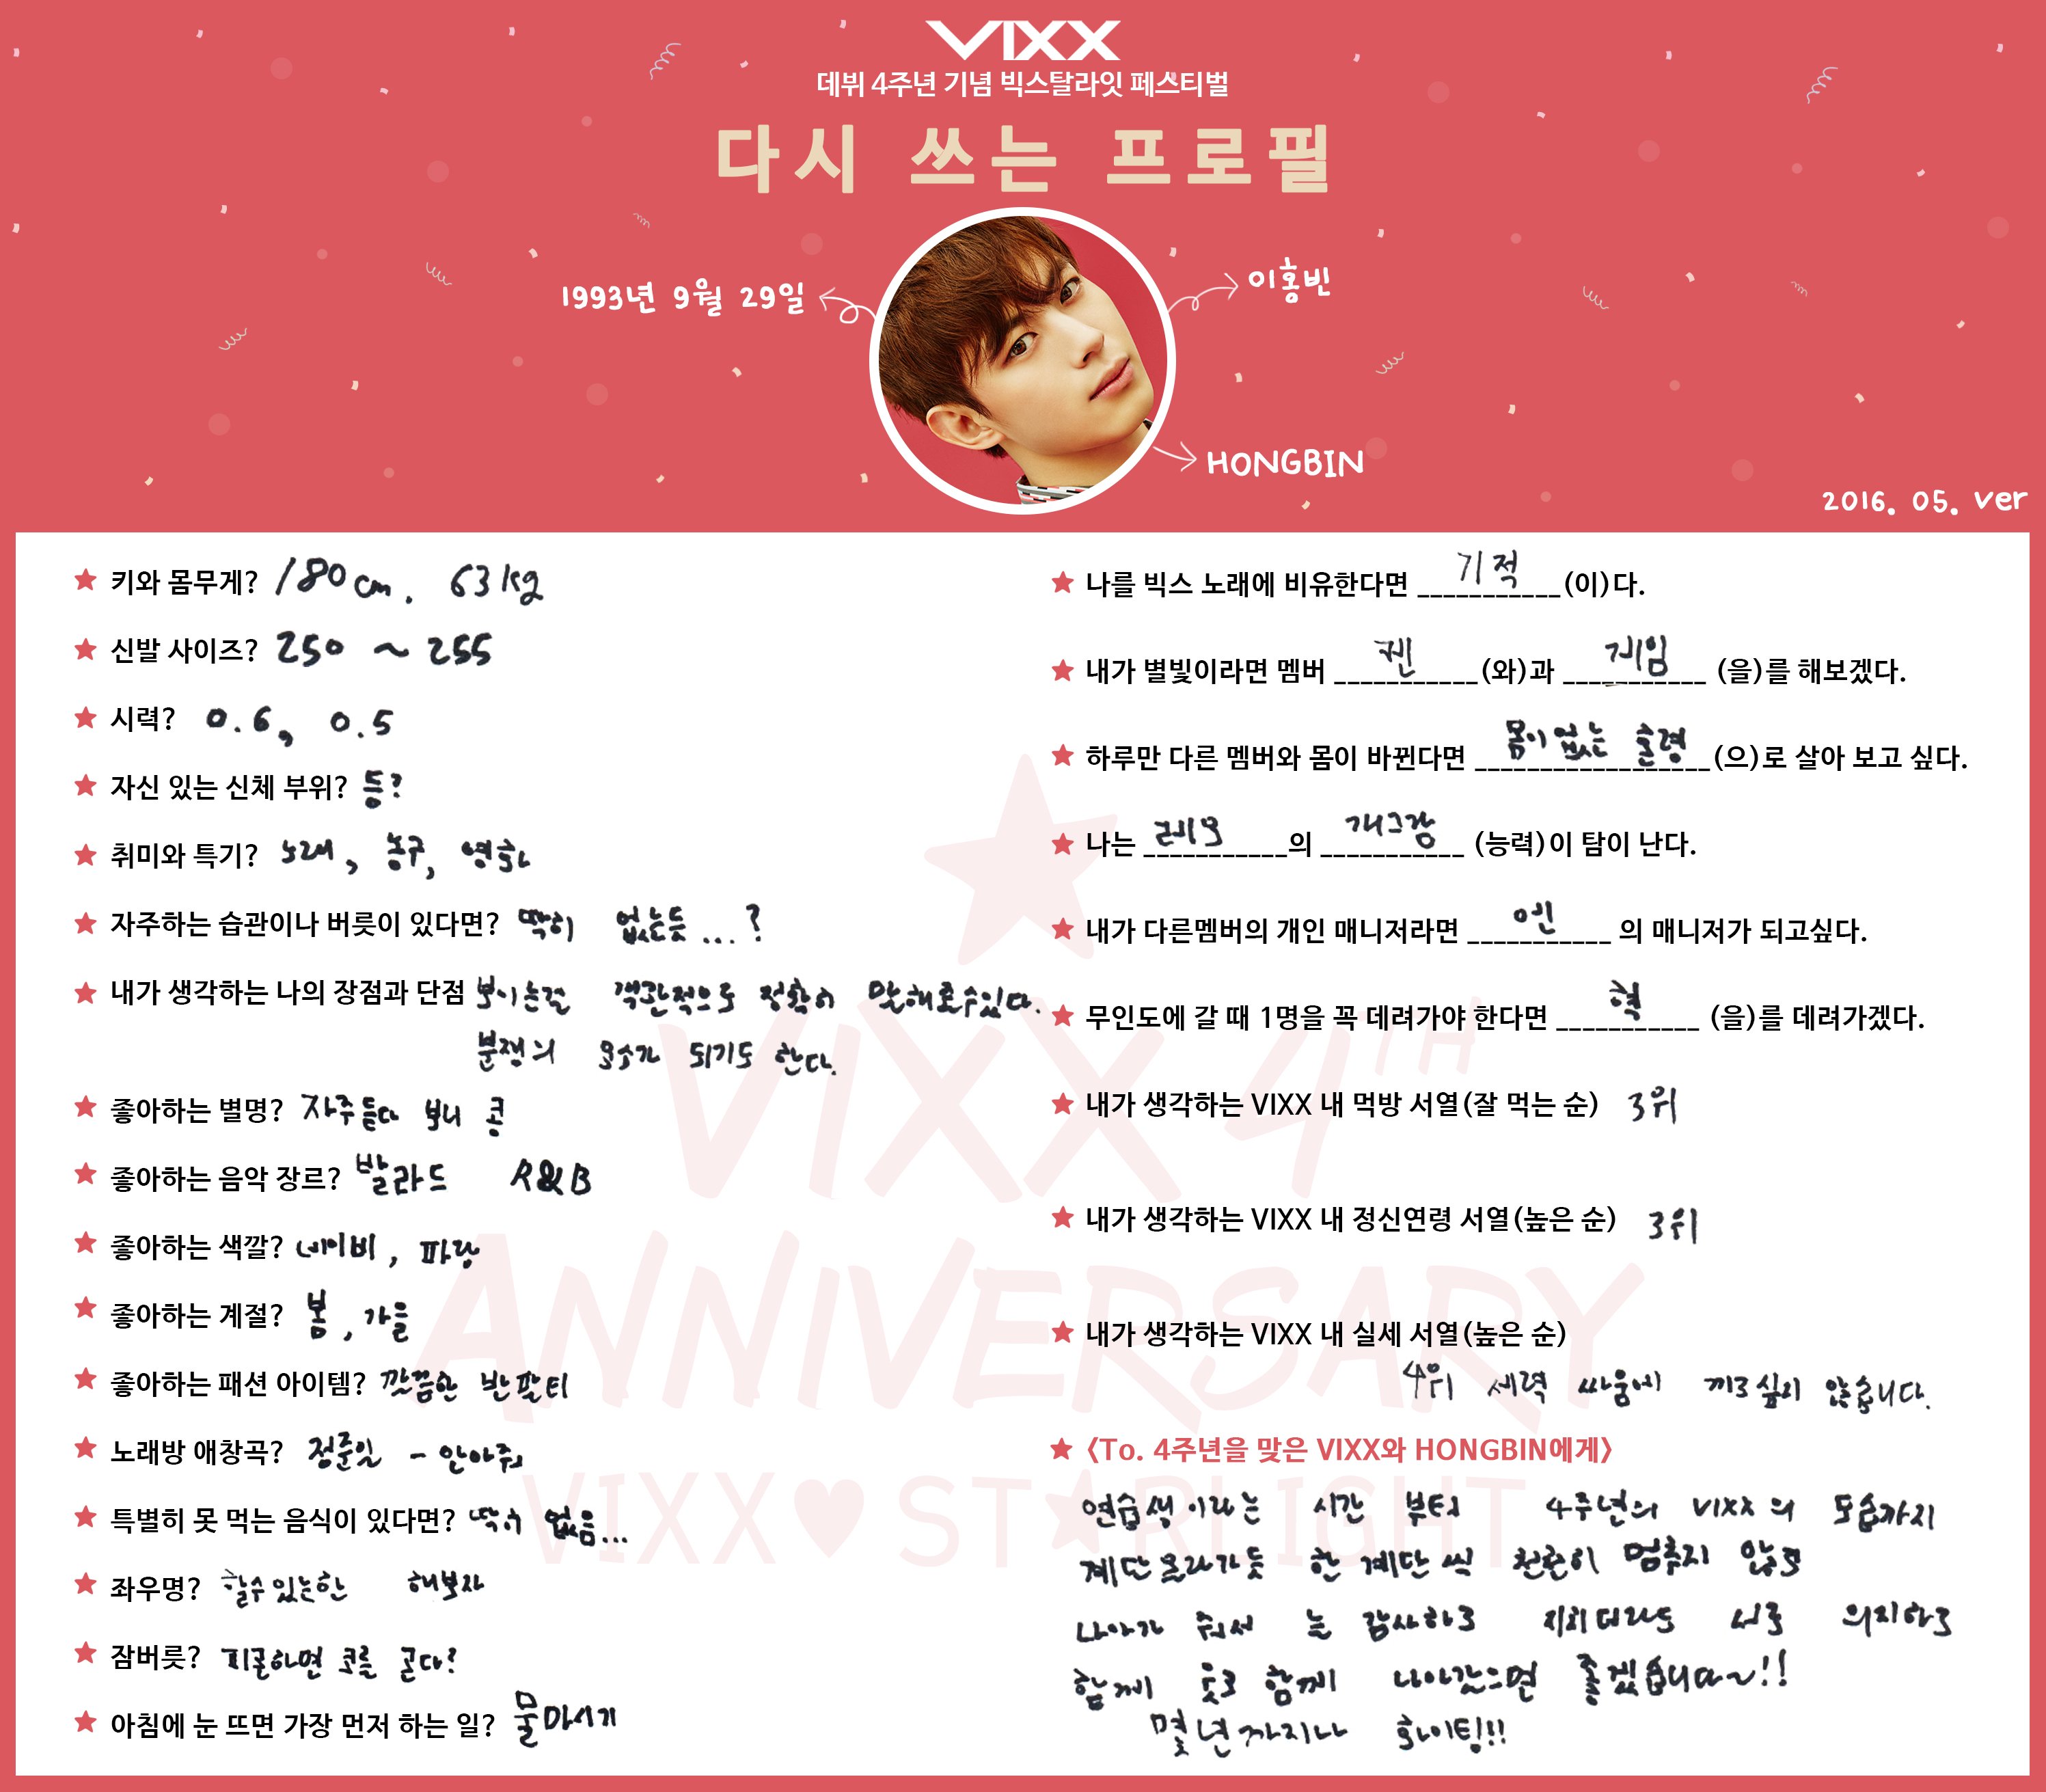 VIXX
데뷔 4주년 기념 빅스탈라잇 페스티벌
다시 쓰는 프로필
1993년 9월 29일
이홍빈
HONGBIN
2016. 05. ver
키와 몸무게? 180cm. 63kg
신발 사이즈? 250 ~ 255
시력? 0.6, 0.5
자신 있는 신체 부위? 등?
취미와 특기? 노래, 농구, 영화
자주하는 습관이나 버릇이 있다면? 딱히 없는듯...?
내가 생각하는 나의 장점과 단점 보이는걸 객관적으로 정확히 말해줄수있다.
분쟁의 요소가 되기도 한다.
좋아하는 별명? 자주 듣다 보니 콩
좋아하는 음악 장르? 발라드 R&B
좋아하는 색깔? 네이비, 파랑
좋아하는 계절? 봄, 가을
좋아하는 패션 아이템? 깔끔한 반팔티
노래방 애창곡? 정준일 - 안아줘
특별히 못 먹는 음식이 있다면? 딱히 없음...
좌우명? 할수있는한 해보자
잠버릇? 피곤하면 코를 곤다?
아침에 눈 뜨면 가장 먼저 하는 일? 물마시기
나를 빅스 노래에 비유한다면 기적(이)다.
내가 별빛이라면 멤버 켄(와)과 게임 (을)를 해보겠다.
하루만 다른 멤버와 몸이 바뀐다면 몸이없는 혼령(으)로 살아 보고 싶다.
나는 레오의 개그감 (능력)이 탐이 난다.
내가 다른멤버의 개인 매니저라면 엔 의 매니저가 되고싶다.
무인도에 갈 때 1명을 꼭 데려가야 한다면 혁 (을)를 데려가겠다.
내가 생각하는 VIXX 내 먹방 서열(잘 먹는 순) 3위
내가 생각하는 VIXX 내 정신연령 서열(높은 순) 3위
내가 생각하는 VIXX 내 실세 서열(높은 순)
4위 세력 싸움에 끼고싶지 않습니다.
<To. 4주년을 맞은 VIXX와 HONGBIN에게>
연습생이라는 시간 부터 4주년의 VIXX의 모습까지
계단올라가듯 한 계단 씩 천천히 멈추지 않고
나아가 줘서 늘 감사하고 지치더라도 서로 의지하고
함께 웃고 함께 나아갔으면 좋겠습니다~!!
몇년까지나 화이팅!!!
VIXX 4TH
ANNIVERSARY
VIXX♥ST★RLIGHT